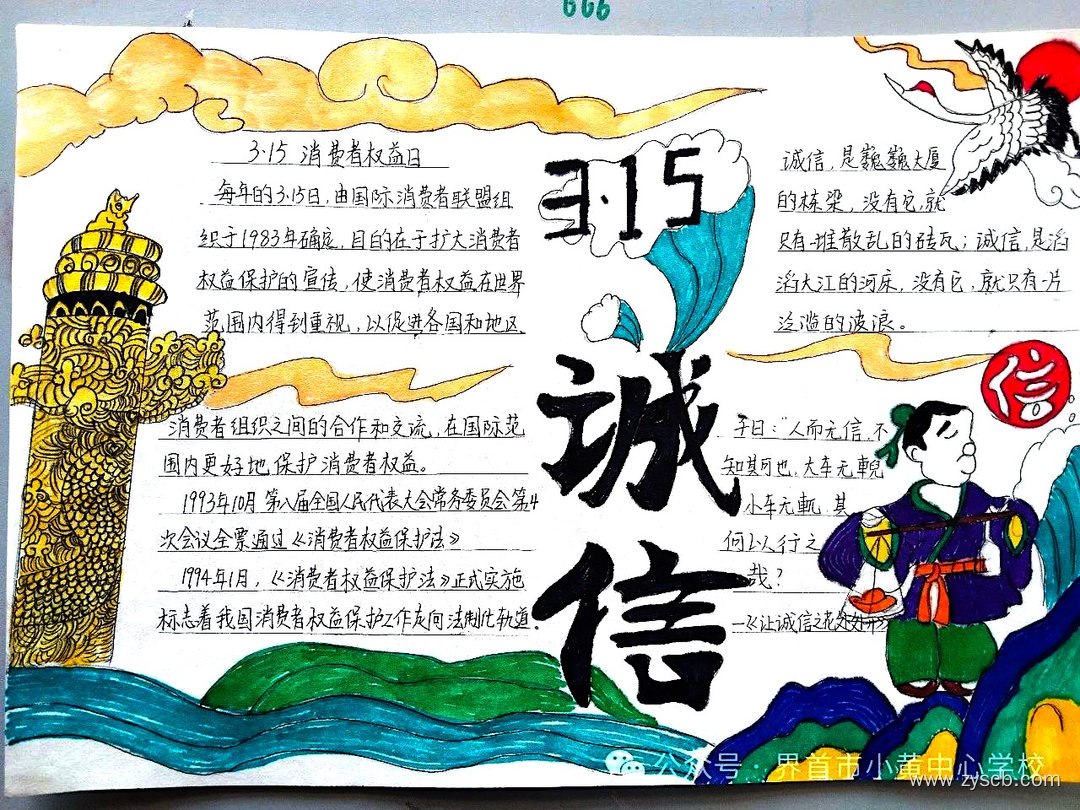 666
3·15 消费者权益日
每年的3·15日,由国际消费者联盟组
织于1983年确定,目的在于扩大消费者
权益保护的宣传,使消费者权益在世界
范围内得到重视,以促进各国和地区
消费者组织之间的合作和交流,在国际范
围内更好地保护消费者权益。
1993年10月第八届全国人民代表大会常务委员会第4
次会议全票通过《消费者权益保护法》
1994年1月,《消费者权益保护法》正式实施
标志着我国消费者权益保护工作走向法制化轨道.
3·15
誠
信
诚信,是巍巍大厦
的栋梁,没有它,就
只有一堆散乱的砖瓦;诚信,是滔
滔大江的河床,没有它,就只有一片
泛滥的波浪。
信
子曰:"人而无信,不
知其可也,大车无輗
小车无軏,其
何以行之
哉?
—《让诚信之花
公众号·界首市小黄中心学校
www.zyscb.com